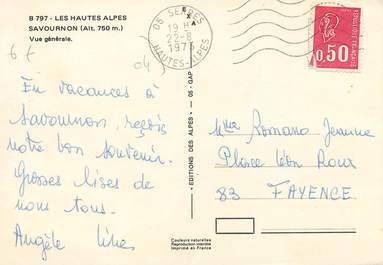 B 797 - LES HAUTES ALPES
SAVOURNON (Alt. 750 m.)
Vue générale.
05 SERRES
19 H
22-8
1975
HAUTES-ALPES
0,50
En vacances à
Savournon, reçois
notre bon souvenir.
Grosses bises de
nous tous.
Angèle
EDITIONS DES ALPES - 05 - GAP
Mme Romano Jeanne
Place léon Roux
83 FAYENCE
Couleurs naturelles
Reproduction interdite
Imprimé en France